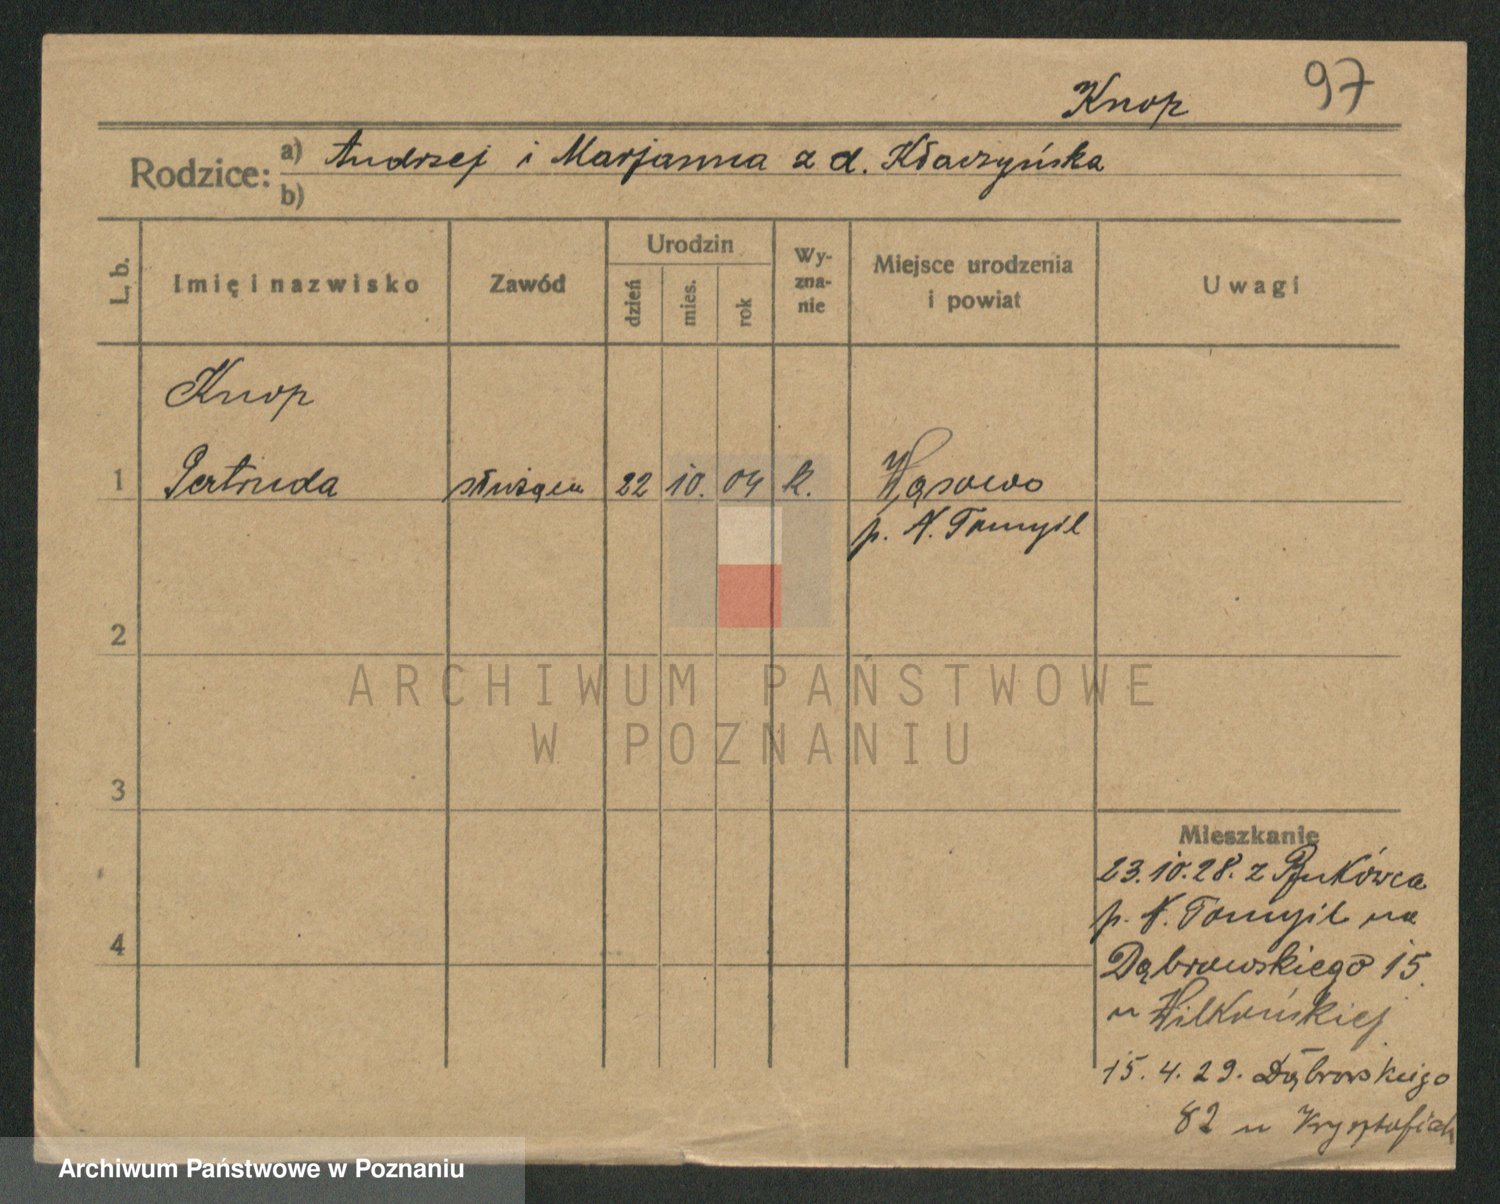 Knop 97
Rodzice: a) Andrzej i Marjanna z d. Kłaczyńska
b)
L. b. Imię i nazwisko Zawód Urodzin dzień mies. rok Wy-zna-nie Miejsce urodzenia i powiat Uwagi
Knop
1 Gertruda służąca 22 10. 04 k. Wąsowo
p. N. Tomyśl
2
ARCHIWUM PAŃSTWOWE
W POZNANIU
3
Mieszkanie
23.10.28. z
p. N. Tomyśl na
4
Dąbrowskiego 15
u Wilkońskiej
15. 4. 29. Dąbrowskiego
82 u
Archiwum Państwowe w Poznaniu